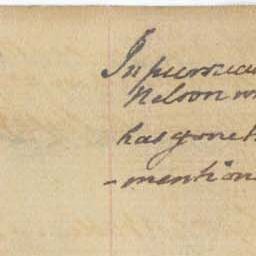 In pursua
Nelson w
has gone t
-mention